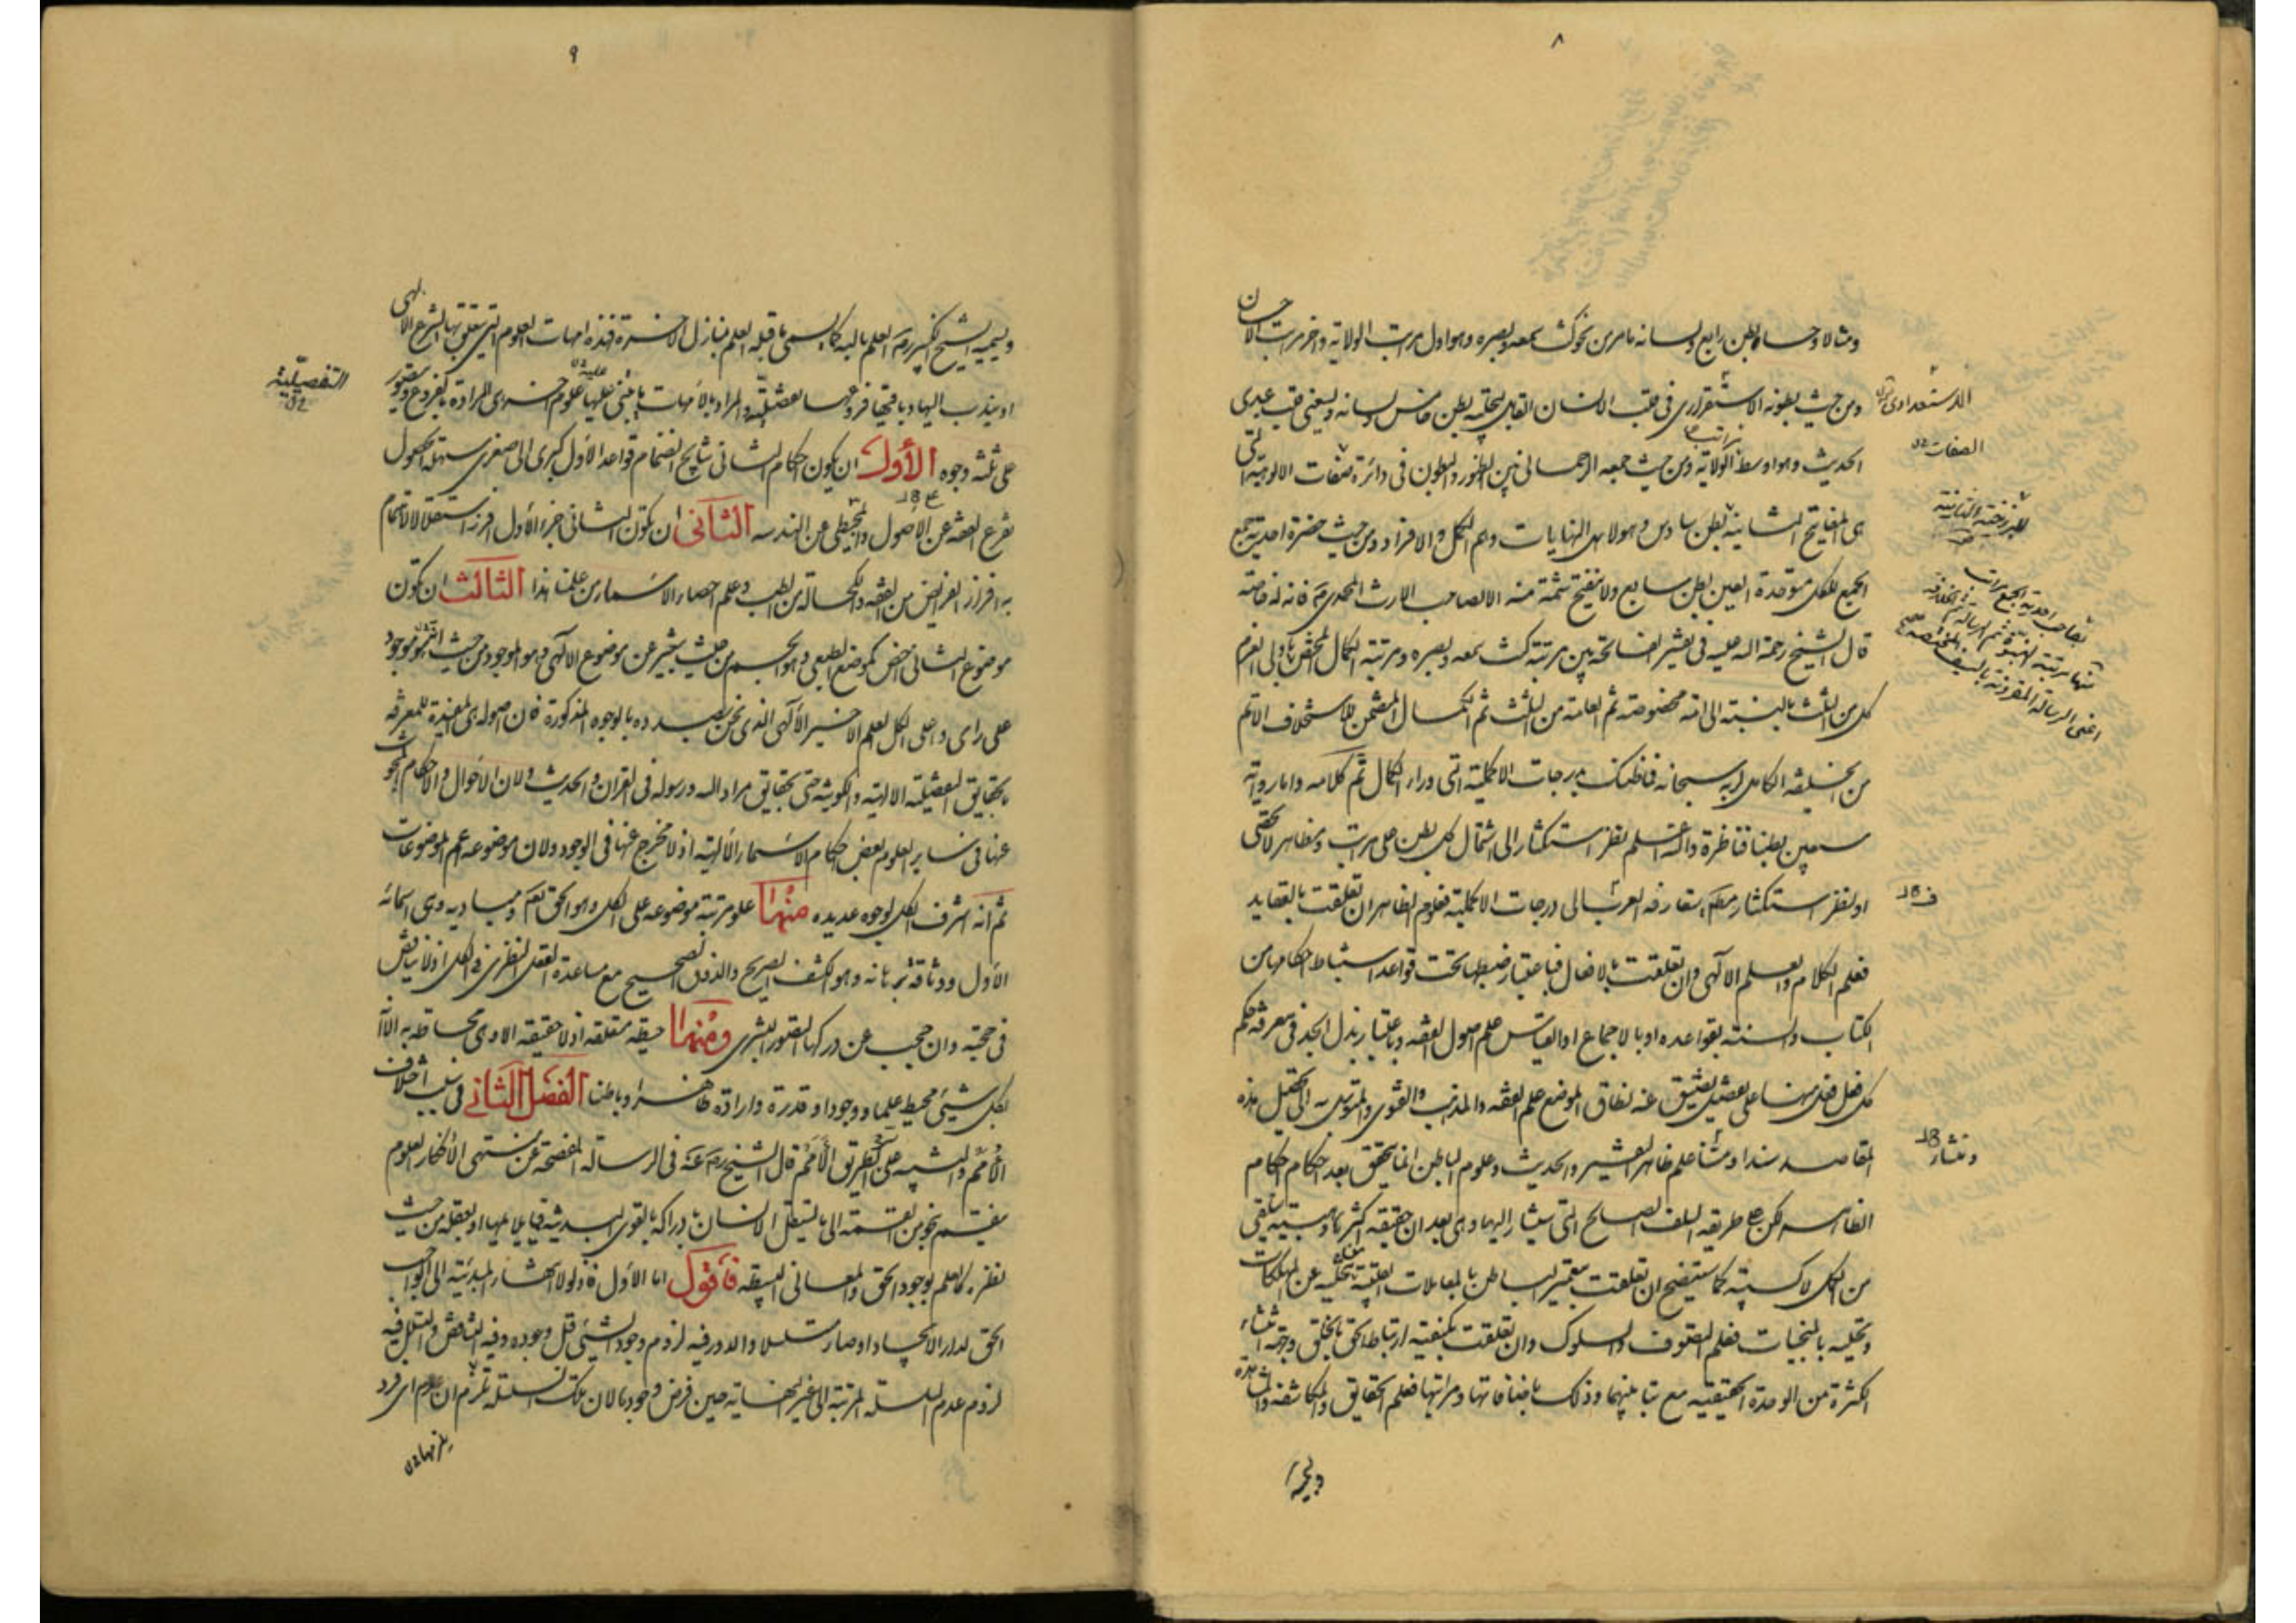 ٨
ومثالا وحسا بطن رابع ولسانه نامر من نحو كنت سمعه وبصره وهو اول مراتب الولاية واخر مراتب الاحسان
ومن حيث بطونه الاستقراري في قلب الانسان القابل لتجليه بطن خامس ولسانه ويسعني قلب عبدي
الحديث وهو اوسط مراتب الولاية ومن حيث جمعه الرحماني بين الظهور والبطون في دائرة صفات الالوهية التي
هي المفاتيح الثانية بطن سادس وهو لاهل النهايات وهم الكمل والافراد ومن حيث حضرة احدية جمع
الجميع للكل متوحدة العين بطن سابع ولا ينفتح شمة منه الا لصاحب الارث المحمدي فانه له خاصة
قال الشيخ رحمة الله عليه في تفسير الفاتحة بين مرتبة كنت سمعه وبصره ومرتبة الكمال المختص باولي العزم
كل من الثلث بالنسبة الى امة مخصوصة ثم العامة من الثلث ثم الكمال المتضمن للاستخلاف الاتم
من الخليفة الكامل لربه سبحانه فما ظنك بدرجات الاكملية التي وراء الكمال تم كلامه واما رواية
سبعين بطنا فناظرة والله اعلم بنظر استكثار الى اشتمال كل بطن على مراتب ومظاهر لا تحصى
او بنظر استكثار تعارفه العرب الى درجات الاكملية فعلوم الظاهر ان تعلقت بالعقايد
فعلم الكلام والعلم الالهي وان تعلقت بالافعال فباعتبار ضبطها تحت قواعد استنباط احكامها من
الكتاب والسنة بقواعده او بالاجماع او القياس علم اصول الفقه وباعتبار بذل الجهد في معرفة حكم
كل فعل فعل منها على تفصيل يضيق عنه نطاق الموضع علم الفقه والمذهب والفتوى والمتوسل به الى تحصيل هذه
المقاصد سندا ومتنا علم ظاهر التفسير والحديث وعلوم الباطن انما يتحقق بعد احكام احكام
الظاهر لكن على طريقه السلف الصالح التي سيشار اليها وهي بعد ان حقيقة اكثرها وهبية تلقي
من الكل لا كسبية كما ستيضح ان تعلقت بتعمير الباطن بالمعاملات القلبية بتخليه عن المهلكات
وتحليه بالمنجيات فعلم التصوف والسلوك وان تعلقت بكيفية ارتباط الحق بالخلق وجهة انتشاء
الكثرة من الوحدة الحقيقية مع تباينهما وذلك باضافاتها ومراتبها فعلم الحقايق والمكاشفة والمشاهدة
الاستعدادي
الصفات
اعني الرسالة المقرونة بالسيف
٩
ويسميه الشيخ الكبير رم العلم بالله كما يسمى ما قبله العلم بمنازل الاخرة فهذه امهات العلوم التي يتعلق بها الشرع الالهي
او يندب اليها وباقيها فروعها التفصيلية والمراد بالامهات ما يبتنى عليها علوم اخر هي المرادة بالفروع ويتصور
على ثلثة وجوه الأول ان يكون احكام الثاني نتايج انضمام قواعد الاول كبرى الى صغرى سهلة الحصول
تفرع الفقه عن الاصول والمجسطي عن الهندسه الثاني ان تكون الثاني جزء الاول افرز استقلالا لاهتمام
به افراز الفرائض من الفقه والكحالة من الطب وعلم احصاء الاسماء من علمنا هذا الثالث ان تكون
موضوع الثاني اخص كموضوع الطبيعي وهو الجسم من حيث يتغير عن موضوع الالهي وهو الموجود من حيث انه موجود
على راى واصل الكل العلم الاخير الالهي الذي نحن بصدده بالوجوه المذكورة فان اصوله هي المفيدة للمعرفة
بحقايق التفصيلية الالهية والكونية حتى بحقايق مراد الله ورسوله في القران والحديث ولان الاحوال والاحكام المبحوث
عنها في ساير العلوم بعض احكام الاسماء الالهية اذ لا مخرج عنها في الوجود ولان موضوعه اعم الموضوعات
ثم انه اشرف الكل لوجوه عديده منها علو مرتبة موضوعه على الكل وهو الحق تعم ومباديه وهي اسمائه
الاول ووثاقة برهانه وهو الكشف الصريح والذوق الصحيح مع مساعدة العقل النظري في الكل اذ لا يناقش
في حجته وان حجب عن دركها القصور البشري ومنها حيطة متعلقه اذ لا حقيقة الا وهي محاطة به الا
بكل شيئ محيط علما ووجودا وقدرة وارادة ظاهرا وباطنا الفصل الثاني في سبب اختلاف
الأمم والتنبيه على الطريق الأمم قال الشيخ رم عنه في الرسالة المفصحة عن منتهى الافكار العلوم
ينقسم بنحو من القسمة الى ما يستقل الانسان بادراكه بالقوى البدنية فيما يلايمها او بعقله من حيث
نظره كالعلم بوجود الحق والمعاني البسيطه فأقول اما الاول فلولا انتهاء المبدئية الى الواجب
الحق لدار الايجاد او صار تسلسلا والدور فيه لزوم وجود الشيئ قبل وجوده وفيه التناقض والتسلسل فيه
لزوم عدم السلسلة المرتبة الى غير النهاية حين فرض وجودها لان تلك السلسلة يلزم ان عدم اي فرد
التفصيلية